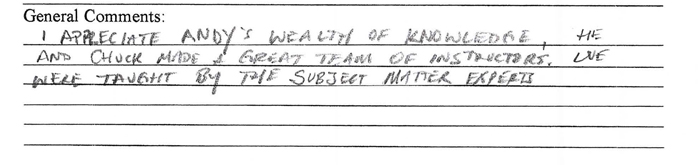 General Comments:
I APPRECIATE ANDY'S WEALTH OF KNOWLEDGE, HE
AND CHUCK MADE A GREAT TEAM OF INSTRUCTORS. WE
WERE TAUGHT BY THE SUBJECT MATTER EXPERTS